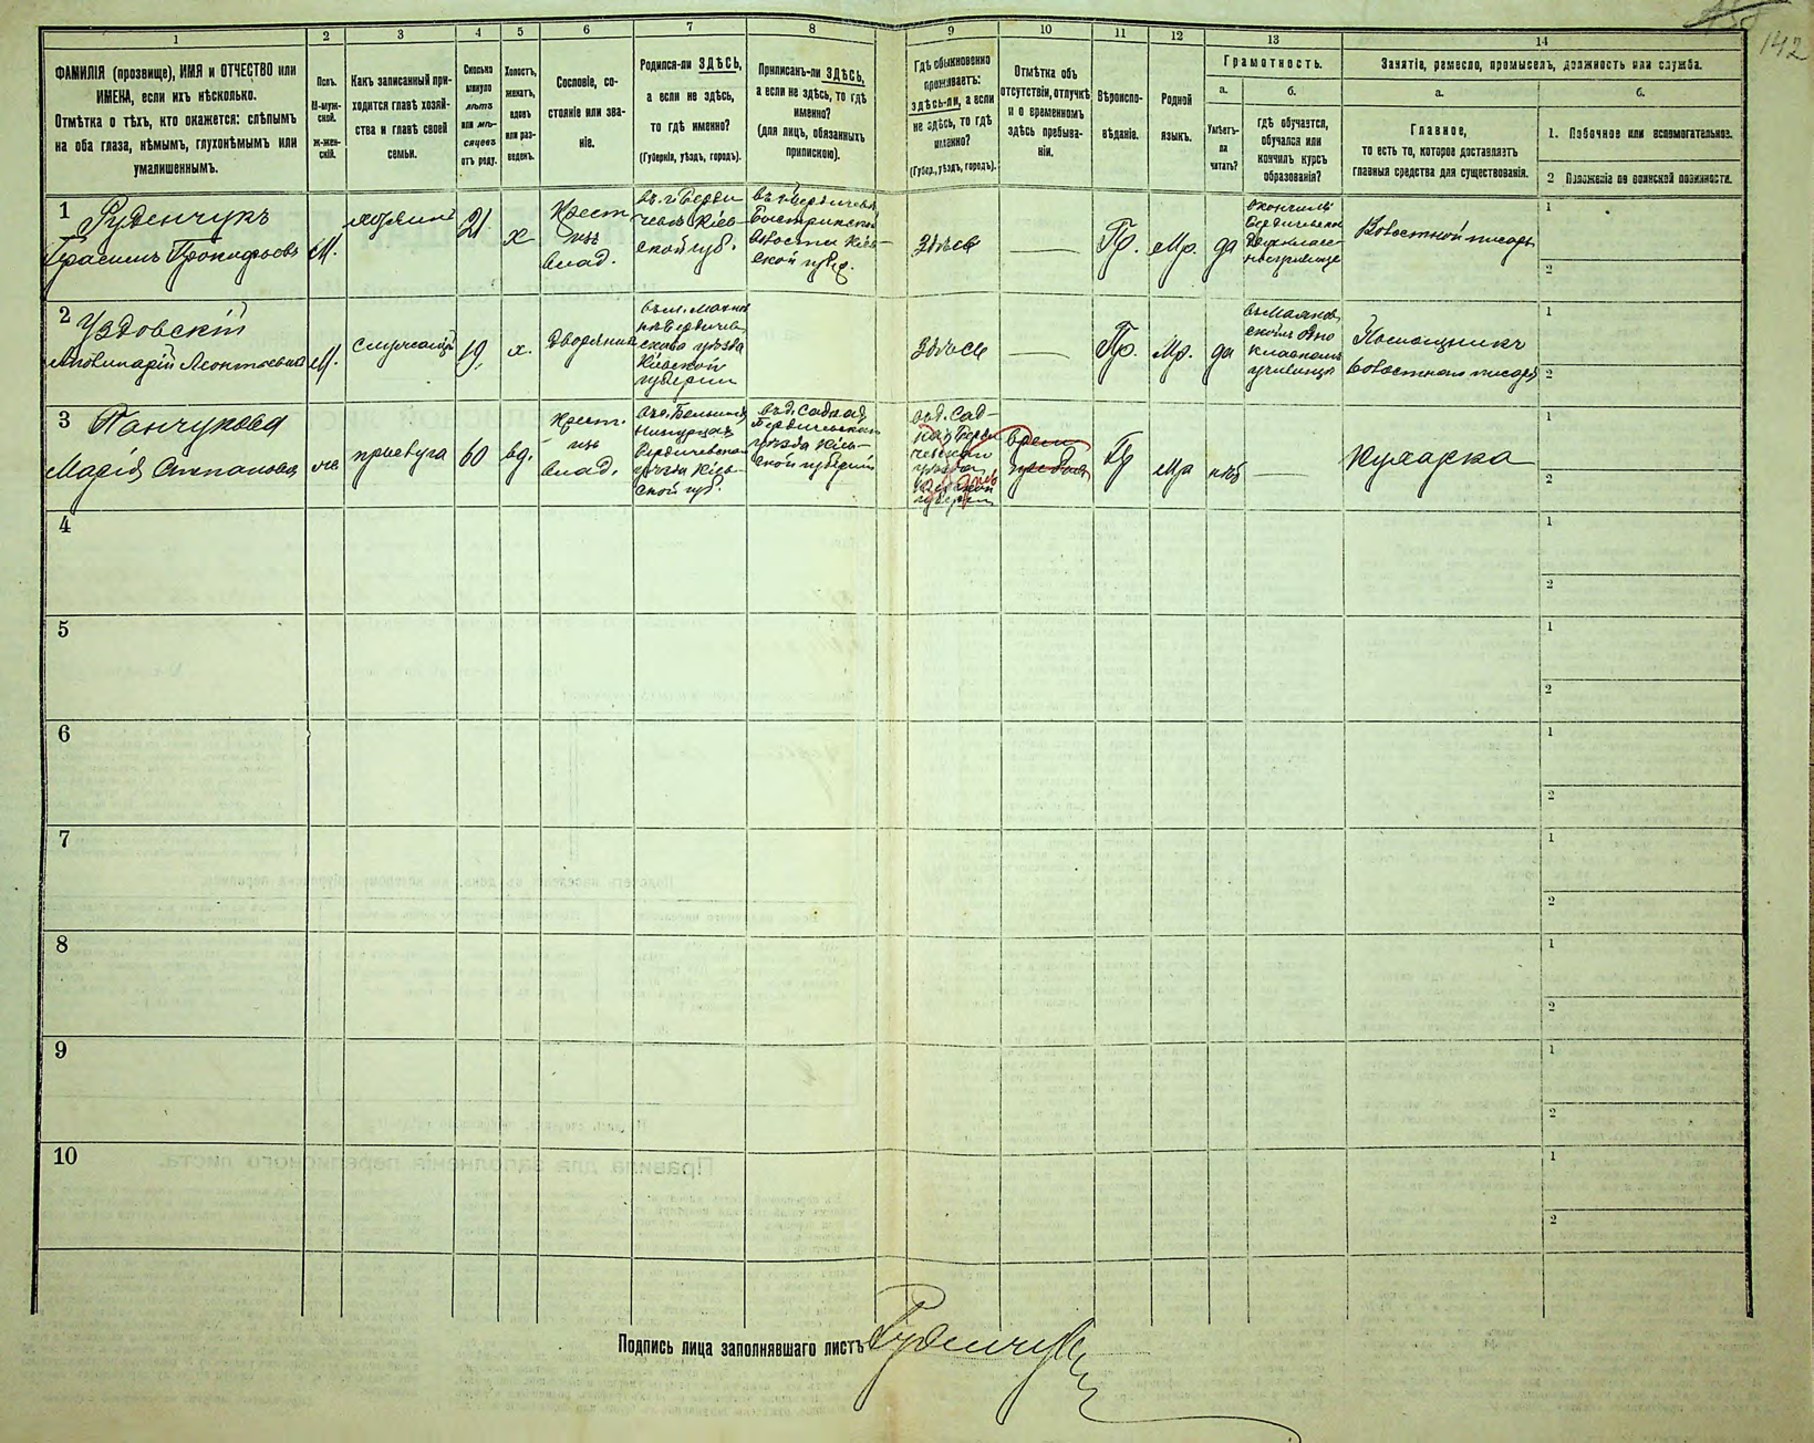 142
1
2
3
4
5
6
7
8
9
10
11
12
13
14
ФАМИЛІЯ (прозвище), ИМЯ и ОТЧЕСТВО или
ИМЕНА, если ихъ нѣсколько.
Отмѣтка о тѣхъ, кто окажется: слѣпымъ
на оба глаза, нѣмымъ, глухонѣмымъ или
умалишеннымъ.
Полъ.
М-муж-
ской.
Ж-жен-
скій.
Какъ записанный при-
ходится главѣ хозяй-
ства и главѣ своей
семьи.
Сколько
минуло
лѣтъ
или мѣ-
сяцевъ
отъ роду.
Холостъ,
женатъ,
вдовъ
или раз-
веденъ.
Сословіе, со-
стояніе или зва-
ніе.
Родился-ли ЗДѢСЬ,
а если не здѣсь,
то гдѣ именно?
(Губернія, уѣздъ, городъ).
Приписанъ-ли ЗДѢСЬ,
а если не здѣсь, то гдѣ
именно?
(для лицъ, обязанныхъ
припискою).
Гдѣ обыкновенно
проживаетъ:
здѣсь-ли, а если
не здѣсь, то гдѣ
именно?
(Губер., уѣздъ, городъ).
Отмѣтка объ
отсутствіи, отлучкѣ
и о временномъ
здѣсь пребыва-
ніи.
Вѣроиспо-
вѣданіе.
Родной
языкъ.
Грамотность.
а.
Умѣетъ-
ли
читать?
б.
гдѣ обучается,
обучался или
кончилъ курсъ
образованія?
Занятіе, ремесло, промыселъ, должность или служба.
а.
Главное,
то есть то, которое доставляетъ
главныя средства для существованія.
б.
1. Побочное или вспомогательное.
2 Положеніе по воинской повинности.
1
Руденчукъ
Герасимъ Прокофьевъ
М.
хозяинъ
21
х
Крест.
изъ
влад.
въ г. Берди
чевѣ Кіев-
ской губ.
Кіев-
ской губер.
Здѣсь
Пр.
Мр.
да
окончилъ
Волостной писарь
1
2
2
Уздовскій
Аполинарій Леонтьевичъ
М.
служащій
19
х.
дворянинъ
Бердичев
скаго уѣзда
Кіевской
губерніи
Здѣсь
Пр.
Мр.
да
въ Махнов
скомъ одно
классномъ
училищѣ
Помощникъ
волостного писаря
1
2
3
Панчукова
Марія Степановна
ж
прислуга
60
вд.
Крест.
изъ
влад.
Бердичевскаго
уѣзда Кіев-
ской губ.
въ д. Садкахъ
Бердичевскаго
уѣзда Кіев-
ской губерніи
въ д. Сад-
кахъ Берди
чевскаго
уѣзда
Кіевской
губерніи
Пр
Мр
нѣтъ
Кухарка
1
2
4
1
2
5
1
2
6
1
2
7
1
2
8
1
2
9
1
2
10
1
2
Подпись лица заполнявшаго листъ
Руденчукъ